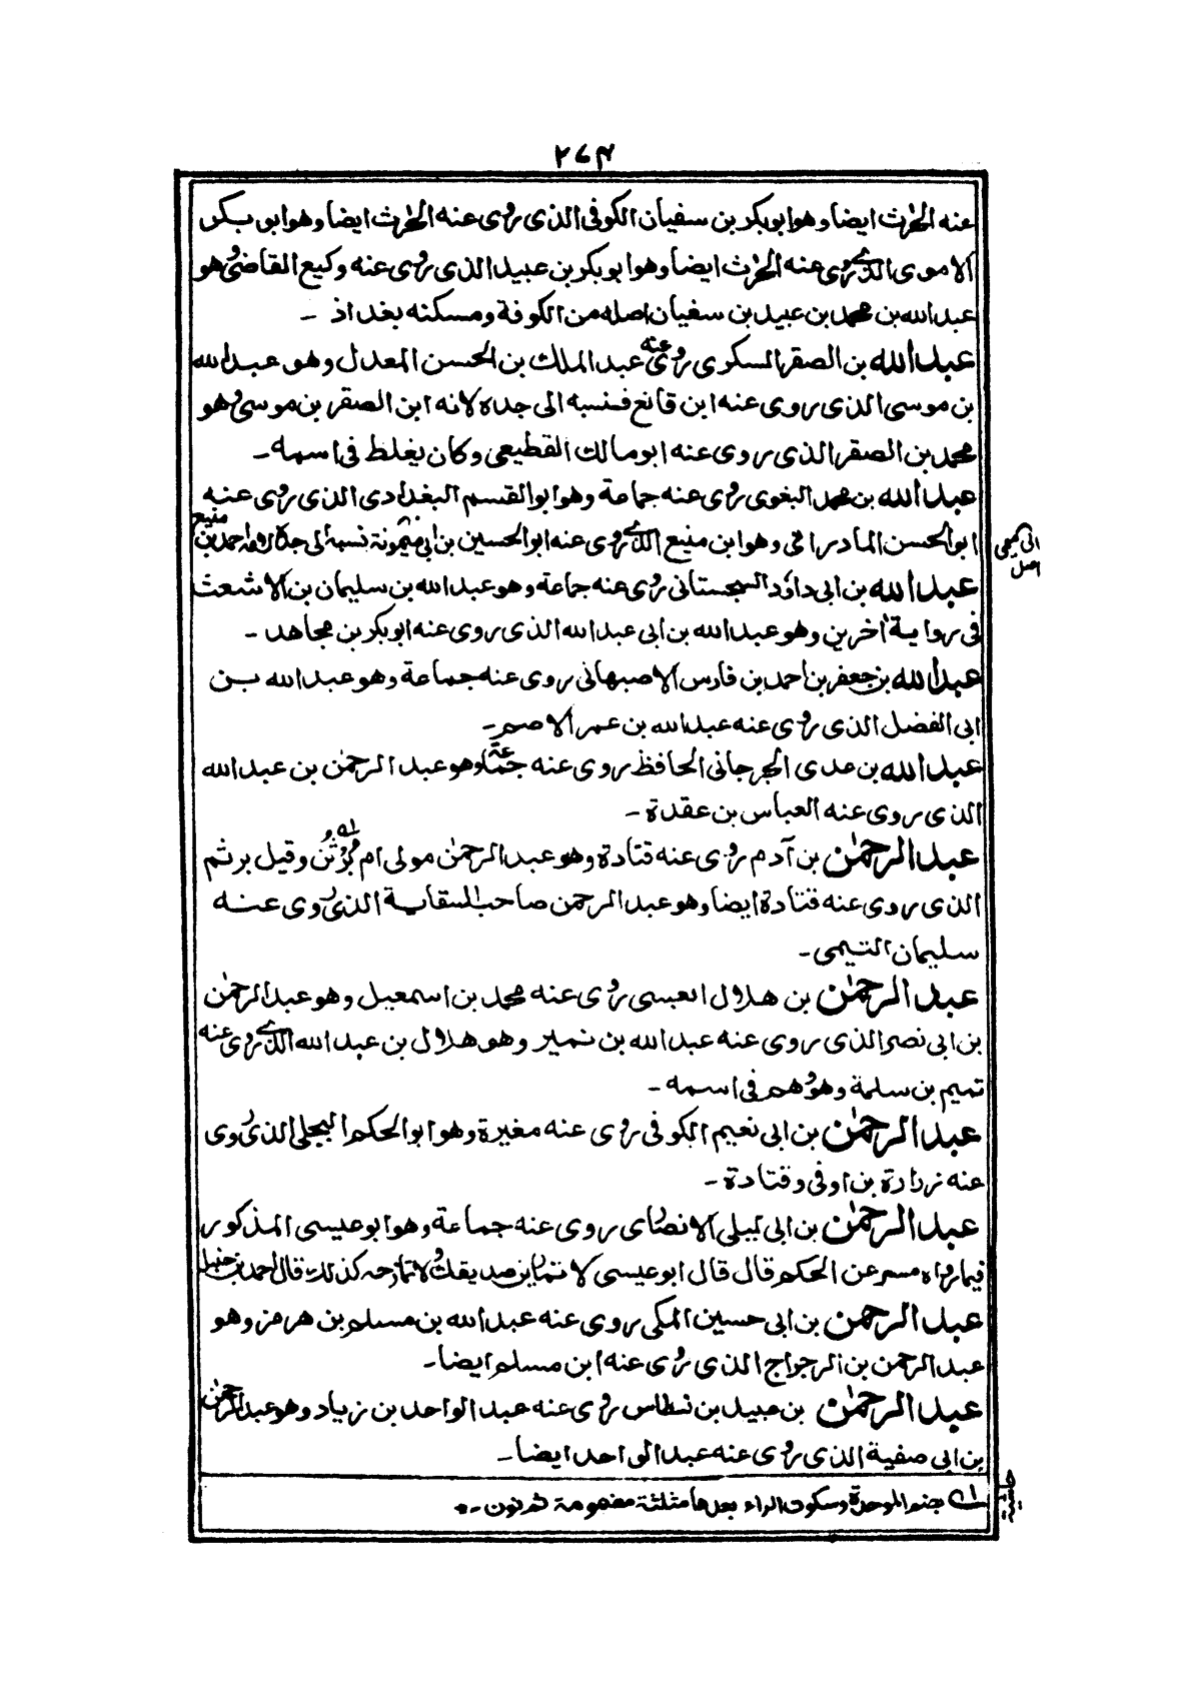 ٢٦٤
عنه الحٰرث ايضا وهو ابو بكر بن سفيان الكوفى الذى روى عنه الحٰرث ايضا وهو ابو بكر
الاموى الذى روى عنه الحٰرث ايضا وهو ابو بكر بن عبيد الذى روى عنه وكيع القاضى وهو
عبد الله بن محمد بن عبيد بن سفيان اصله من الكوفة ومسكنه بغداذ -
عبد الله بن الصقر السكرى روى عنه عبد الملك بن الحسن المعدل وهو عبد الله
بن موسى الذى روى عنه ابن قانع فنسبه الى جده لانه ابن الصقر بن موسى وهو
محمد بن الصقر الذى روى عنه ابو مالك القطيعى وكان يغلط فى اسمه -
عبد الله بن محمد البغوى روى عنه جماعة وهو ابو القسم البغدادى الذى روى عنه
ابو الحسن المادرائى وهو ابن منيع الذى روى عنه ابو الحسين بن ابى ميمونة نسبه الى جده لامه احمد بن منيع
عبد الله بن ابى داؤد السجستانى روى عنه جماعة وهو عبد الله بن سليمان بن الاشعث
فى رواية اٰخرين وهو عبد الله بن ابى عبد الله الذى روى عنه ابو بكر بن مجاهد -
عبد الله بن جعفر بن احمد بن فارس الاصبهانى روى عنه جماعة وهو عبد الله بن
ابى الفضل الذى روى عنه عبد الله بن عمر الاصم -
عبد الله بن عدى الجرجانى الحافظ روى عنه جماعة وهو عبد الرحمٰن بن عبد الله
الذى روى عنه العباس بن عقدة -
عبد الرحمٰن بن آدم روى عنه قتادة وهو عبد الرحمٰن مولى ام بُرْثُن وقيل برثم
الذى روى عنه قتادة ايضا وهو عبد الرحمن صاحب السقاية الذى روى عنه
سليمان التيمى -
عبد الرحمٰن بن هلال العبسى روى عنه محمد بن اسمعيل وهو عبد الرحمٰن
بن ابى نصر الذى روى عنه عبد الله بن نمير وهو هلال بن عبد الله الذى روى عنه
تميم بن سلمة وهو وهم فى اسمه -
عبد الرحمٰن بن ابى نعيم الكوفى روى عنه مغيرة وهو ابو الحكم البجلى الذى روى
عنه زرارة بن اوفى وقتادة -
عبد الرحمٰن بن ابى ليلى الانصارى روى عنه جماعة وهو ابو عيسى المذكور
فيما رواه مسعر عن الحكم قال قال ابو عيسى لا تمارين صديقك ولا تمازحه كذلك قال احمد بن حنبل
عبد الرحمن بن ابى حسين المكى روى عنه عبد الله بن مسلم بن هرمز وهو
عبد الرحمن بن الرجراج الذى روى عنه ابن مسلم ايضا -
عبد الرحمٰن بن عبيد بن نسطاس روى عنه عبد الواحد بن زياد وهو عبد الرحمٰن
بن ابى صفية الذى روى عنه عبد الواحد ايضا -
بضم الموحدة وسكون الراء بعدها مثلثة مضمومة ثم نون -